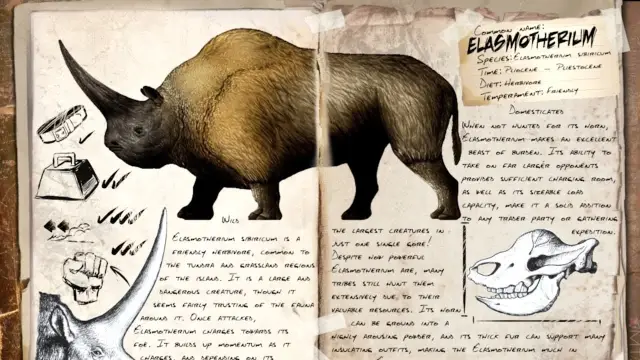 Common name:
ELASMOTHERIUM
Species: Elasmotherium sibiricum
Time: Pliocene - Pliestocene
Diet: Herbivore
Temperament: Friendly
Wild
Elasmotherium sibiricum is a
friendly herbivore, common to
the tundra and grassland regions
of the island. It is a large and
dangerous creature, though it
seems fairly trusting of the fauna
around it. Once attacked,
Elasmotherium charges towards its
foe. It builds up momentum as it
charges, and depending on its
the largest creatures in
just one single gore!
Despite how powerful
Elasmotherium are, many
tribes still hunt them
extensively due to their
valuable resources. Its horn
can be ground into a
highly arousing powder, and its thick fur can support many
insulating outfits, making the Elasmotherium much
Domesticated
When not hunted for its horn,
Elasmotherium makes an excellent
beast of burden. Its ability to
take on far larger opponents
provided sufficient charging room,
as well as its sizeable load
capacity, make it a solid addition
to any trader party or gathering
expedition.